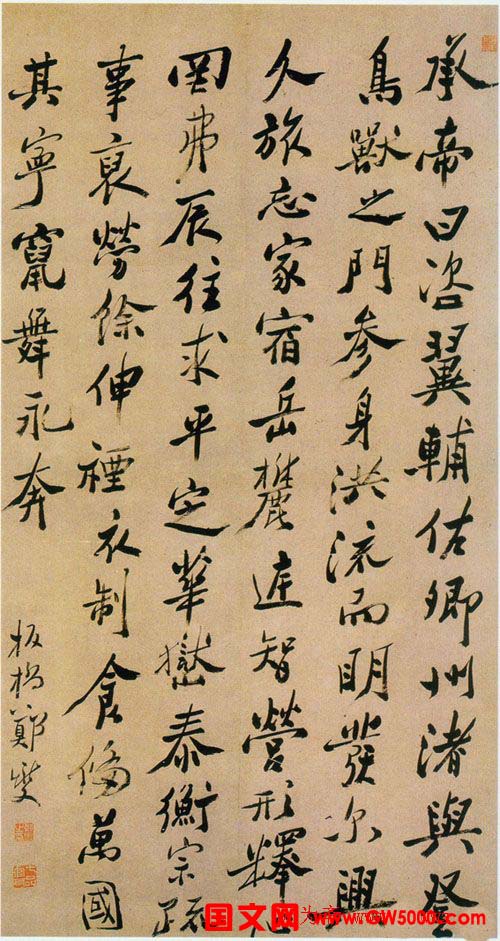 承帝曰咨翼輔佑卿州渚與登
鳥獸之門参身洪流而明發尔興
久旅忘家宿岳麓庭智營形釋
罔弗辰往求平定華嶽泰衡宗疏
事裒勞餘伸禋衣制食俻萬國
其寧竄舞永奔
板橋鄭燮
国文网 www.GW5000.com